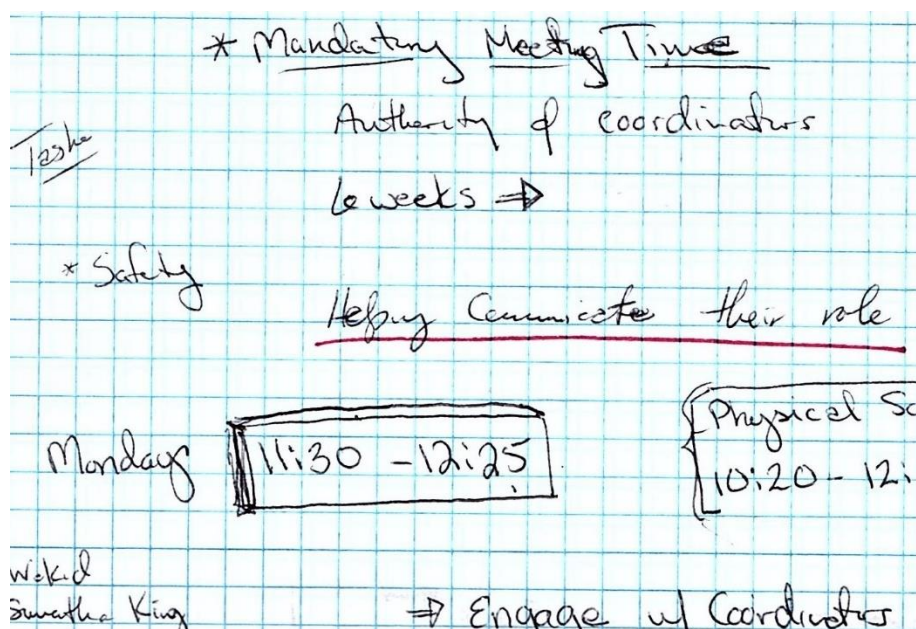 * Mandatory Meeting Time
Authority of coordinators
Tasha
6 weeks ⇒
* Safety
Helping Communicate their role
Monday 11:30 - 12:25
Physical Sc
10:20 - 12:
King
⇒ Engage w/ Coordinators